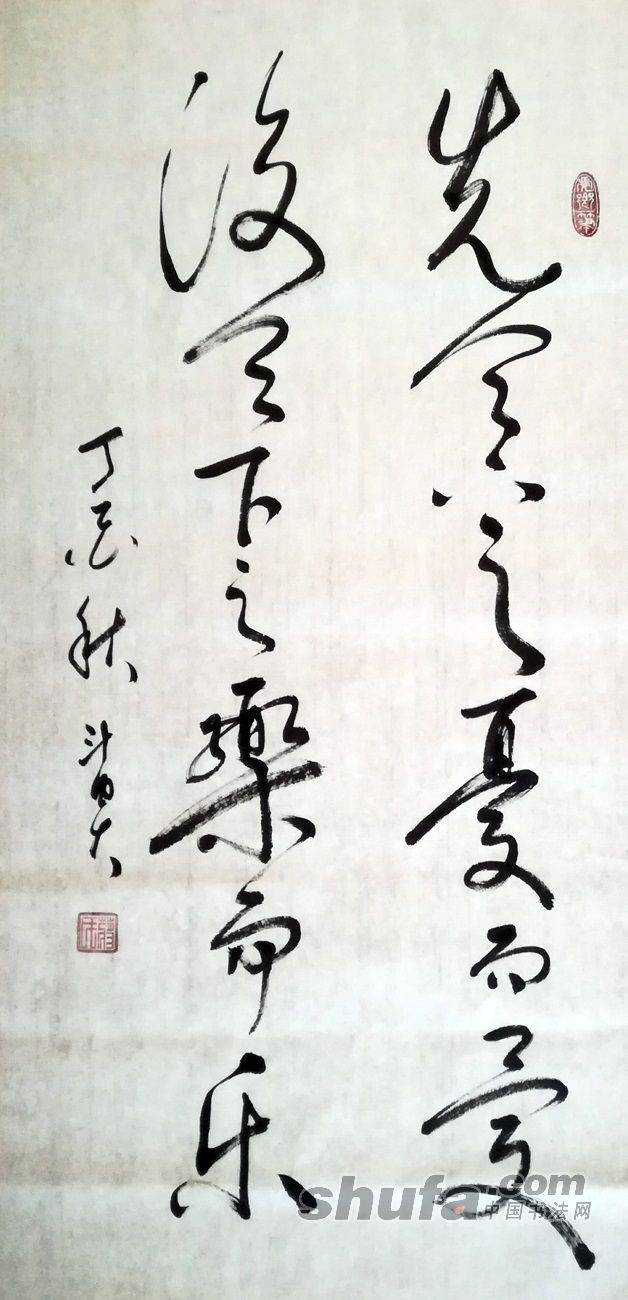 先天下之憂而憂
後天下之樂而乐
丁酉秋
shufa.com
中国书法网